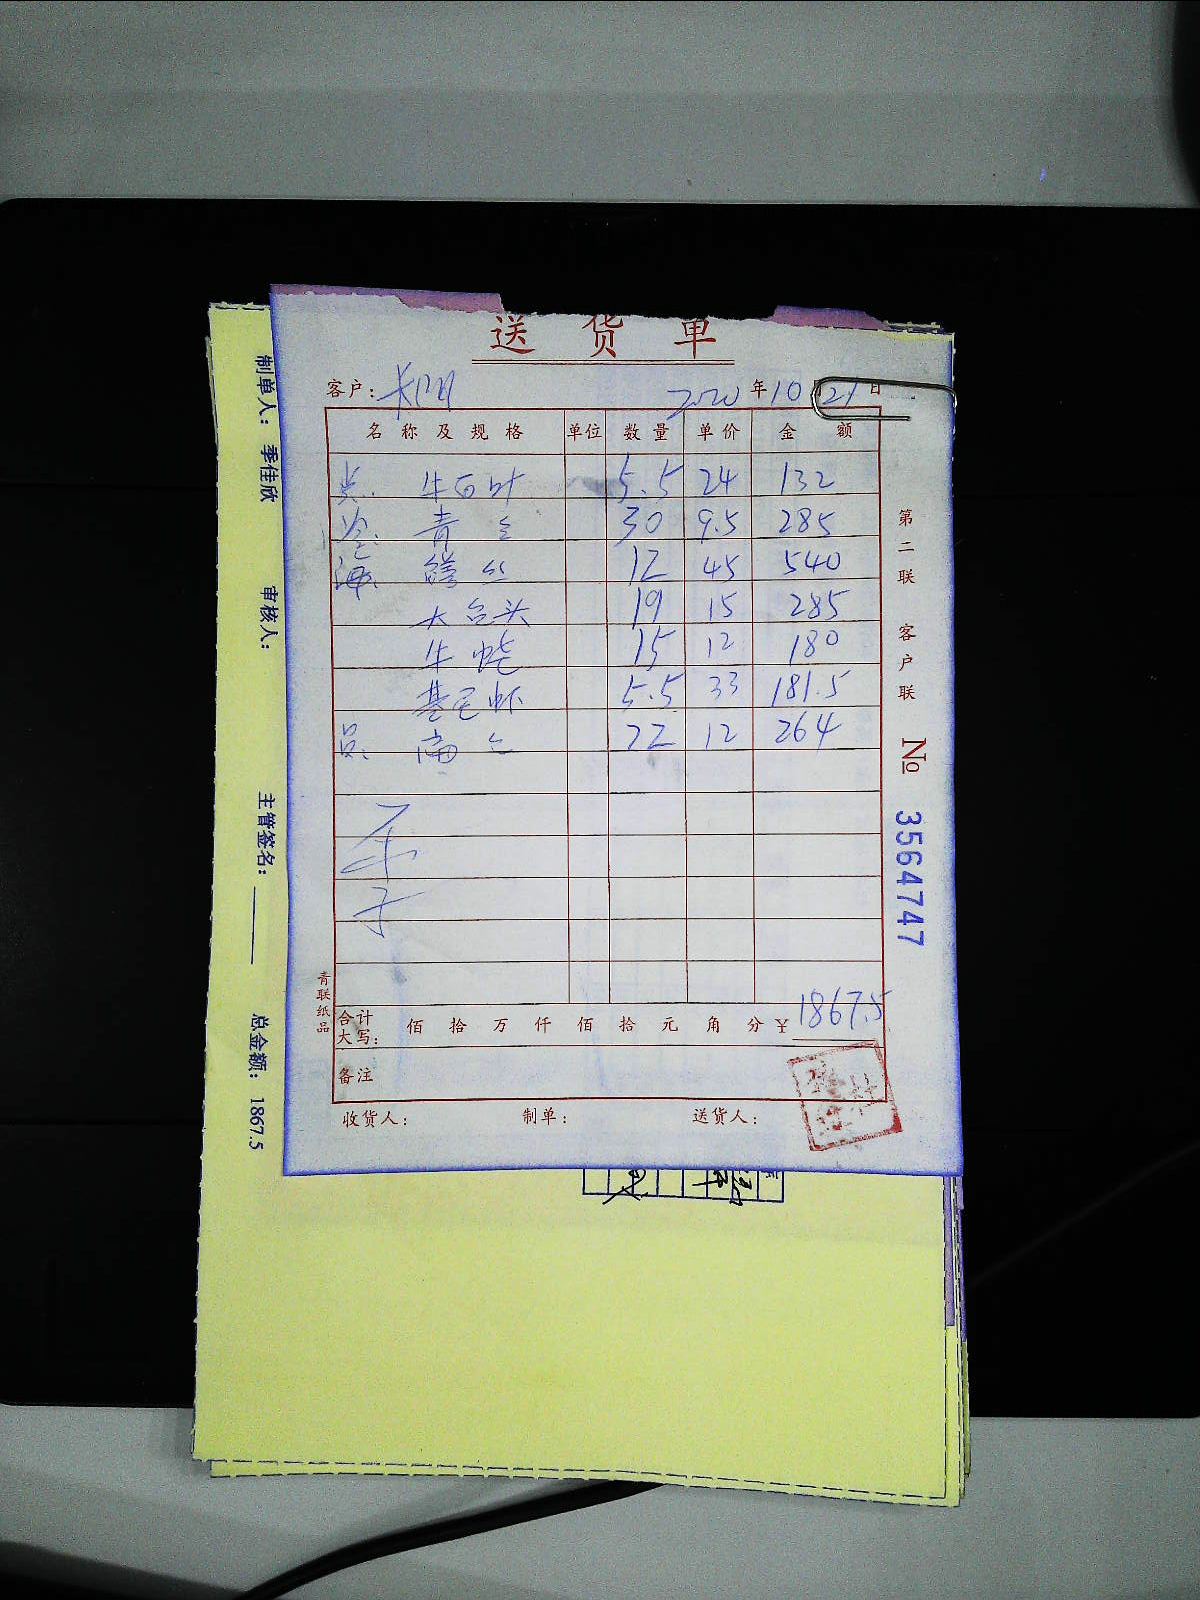 送货单
客户： 2020年10月21日
名称及规格 单位 数量 单价 金额
牛百叶 5.5 24 132
青 30 9.5 285
鳝丝 12 45 540
大 头 19 15 285
牛 15 12 180
基围虾 5.5 33 181.5
22 12 264
合计大写： 佰 拾 万 仟 佰 拾 元 角 分 ¥ 1867.5
备注
收货人： 制单： 送货人：
第二联 客户联
№ 3564747
青联纸品
制单人： 季佳欣 审核人： 主管签名： 总金额： 1867.5